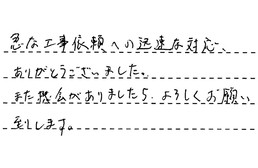 急な工事依頼への迅速な対応、
ありがとうございました。
また機会がありましたら、よろしくお願い
致します。